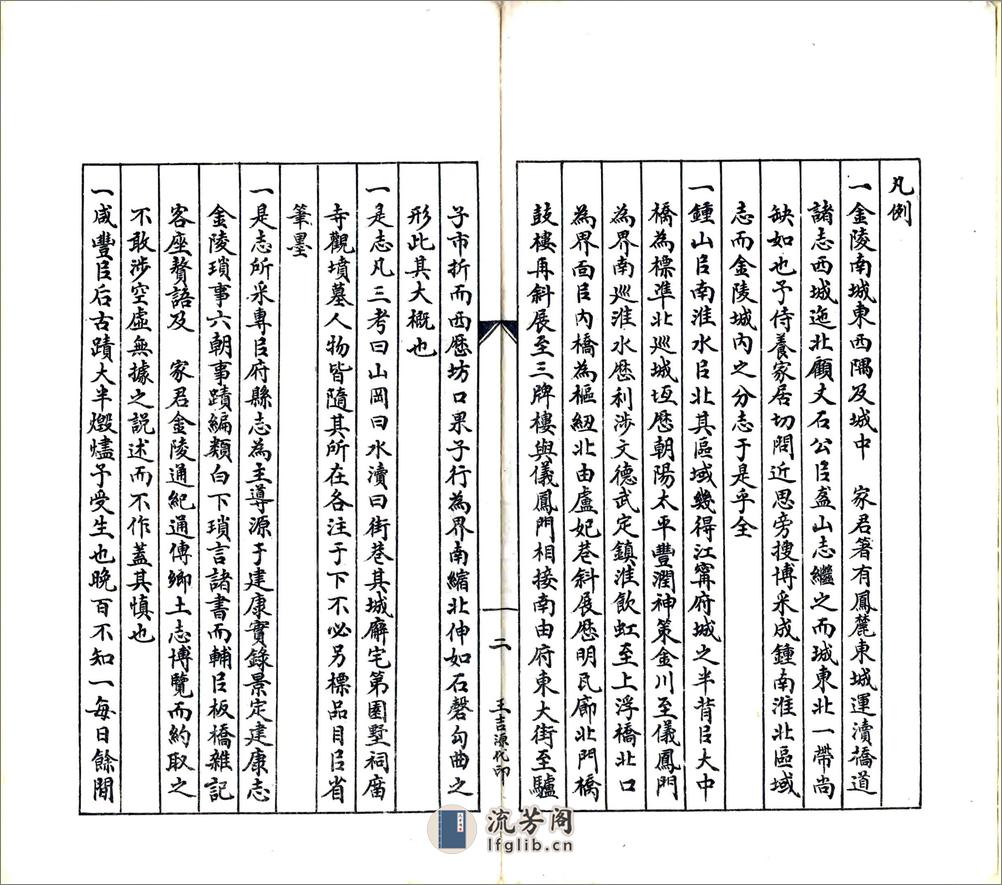 凡例
一金陵南城東西隅及城中　家君箸有鳳麓東城運瀆橋道
諸志西城迤北顧丈石公㠯盋山志繼之而城東北一帶尚
缺如也予侍養家居切問近思旁搜博采成鍾南淮北區域
志而金陵城內之分志于是乎全
一鍾山㠯南淮水㠯北其區域幾得江甯府城之半背㠯大中
橋為標準北巡城垣歷朝陽太平豐潤神策金川至儀鳳門
為界南巡淮水歷利涉文德武定鎮淮飲虹至上浮橋北口
為界面㠯內橋為樞紐北由盧妃巷斜展歷明瓦廊北門橋
鼓樓再斜展至三牌樓與儀鳳門相接南由府東大街至驢
子市折而西歷坊口果子行為界南縮北伸如石磬勾曲之
形此其大概也
一是志凡三考曰山岡曰水瀆曰街巷其城廨宅第園墅祠廟
寺觀墳墓人物皆隨其所在各注于下不必另標品目㠯省
筆墨
一是志所采專㠯府縣志為主導源于建康實錄景定建康志
金陵瑣事六朝事蹟編類白下瑣言諸書而輔㠯板橋雜記
客座贅語及　家君金陵通紀通傳鄉土志博覽而約取之
不敢涉空虛無據之說述而不作蓋其慎也
一咸豐㠯后古蹟大半燬燼予受生也晚百不知一每日餘閒
二
王吉源代印
流芳阁
lfglib.cn